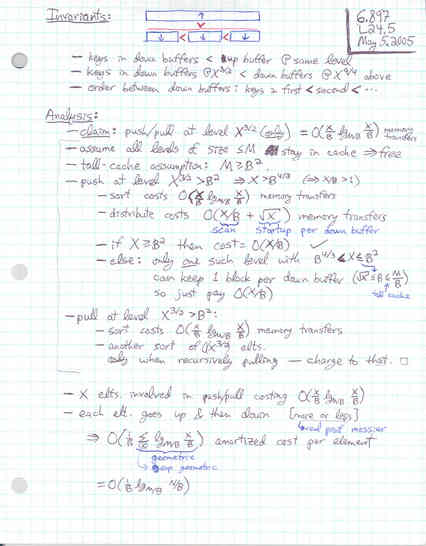 Invariants:
6.897
L24.5
May 5, 2005
— keys in down buffers < up buffer @ same level
— keys in down buffers @ X^3/2 < down buffers @ X^9/4 above
— order between down buffers: keys in first < second < ...
Analysis:
— claim: push/pull at level X^3/2 (only) = O(X/B lg_M/B X/B) memory transfers
— assume all levels of size ≤ M stay in cache ⇒ free
— tall-cache assumption: M ≥ B².
— push at level X^3/2 > B² ⇒ X > B^4/3 (⇒ X/B > 1)
— sort costs O(X/B lg_M/B X/B) memory transfers
— distribute costs O(X/B + √X) memory transfers
scan startup per down buffer
— if X ≥ B² then cost = O(X/B) ✓
— else: only one such level with B^4/3 ≤ X ≤ B²
can keep 1 block per down buffer (√X ≤ B ≤ M/B)
tall cache
so just pay O(X/B)
— pull at level X^3/2 > B²:
— sort costs O(X/B lg_M/B X/B) memory transfers
— another sort of X^3/2 elts.
only when recursively pulling — charge to that. □
— X elts. involved in push/pull costing O(X/B lg_M/B X/B)
— each elt. goes up & then down [more or less]
real proof messier
⇒ O(1/B Σ lg_M/B X/B) amortized cost per element
geometric
geometric
= O(1/B lg_M/B N/B)